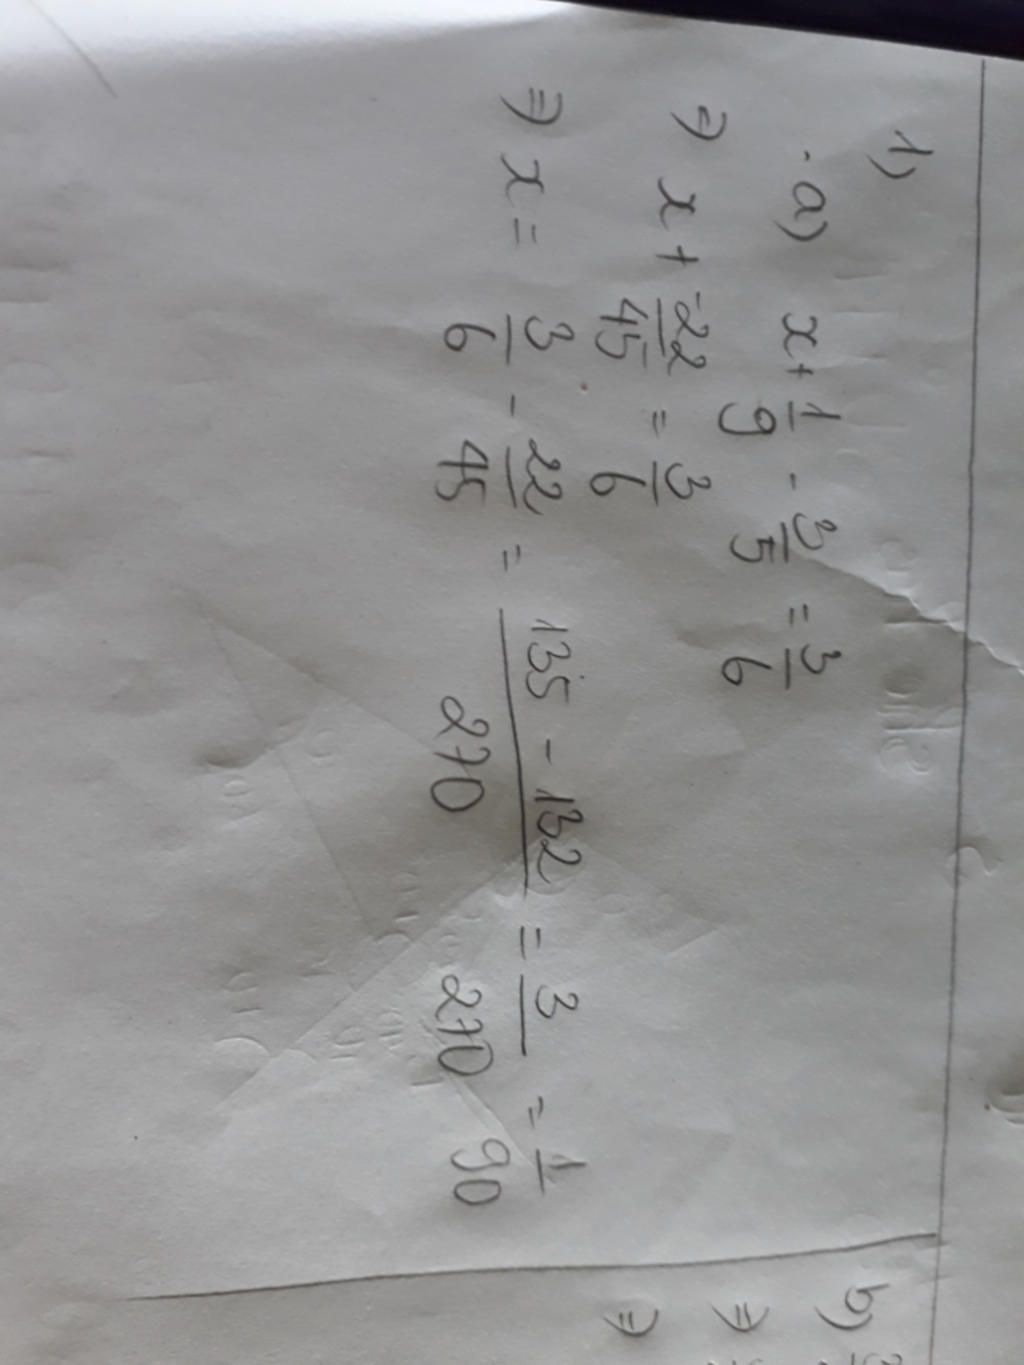 1)
a) x + 1/9 - 3/5 = 3/6
⇒ x + -22/45 = 3/6
⇒ x = 3/6 - 22/45 = (135 - 132)/270 = 3/270 = 1/90
b)
⇒
⇒